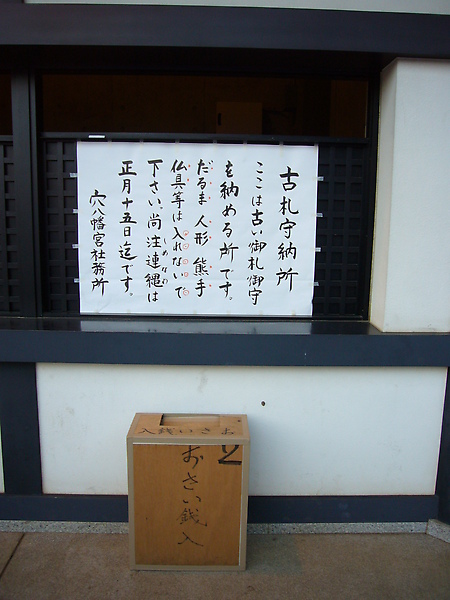 古札守納所
ここは古い御札御守
を納める所です。
だるま 人形 熊手
仏具等は入れないで
下さい。尚注連縄は
しめなわ
正月十五日迄です。
穴八幡宮社務所
おさい銭入
2
おさい銭入